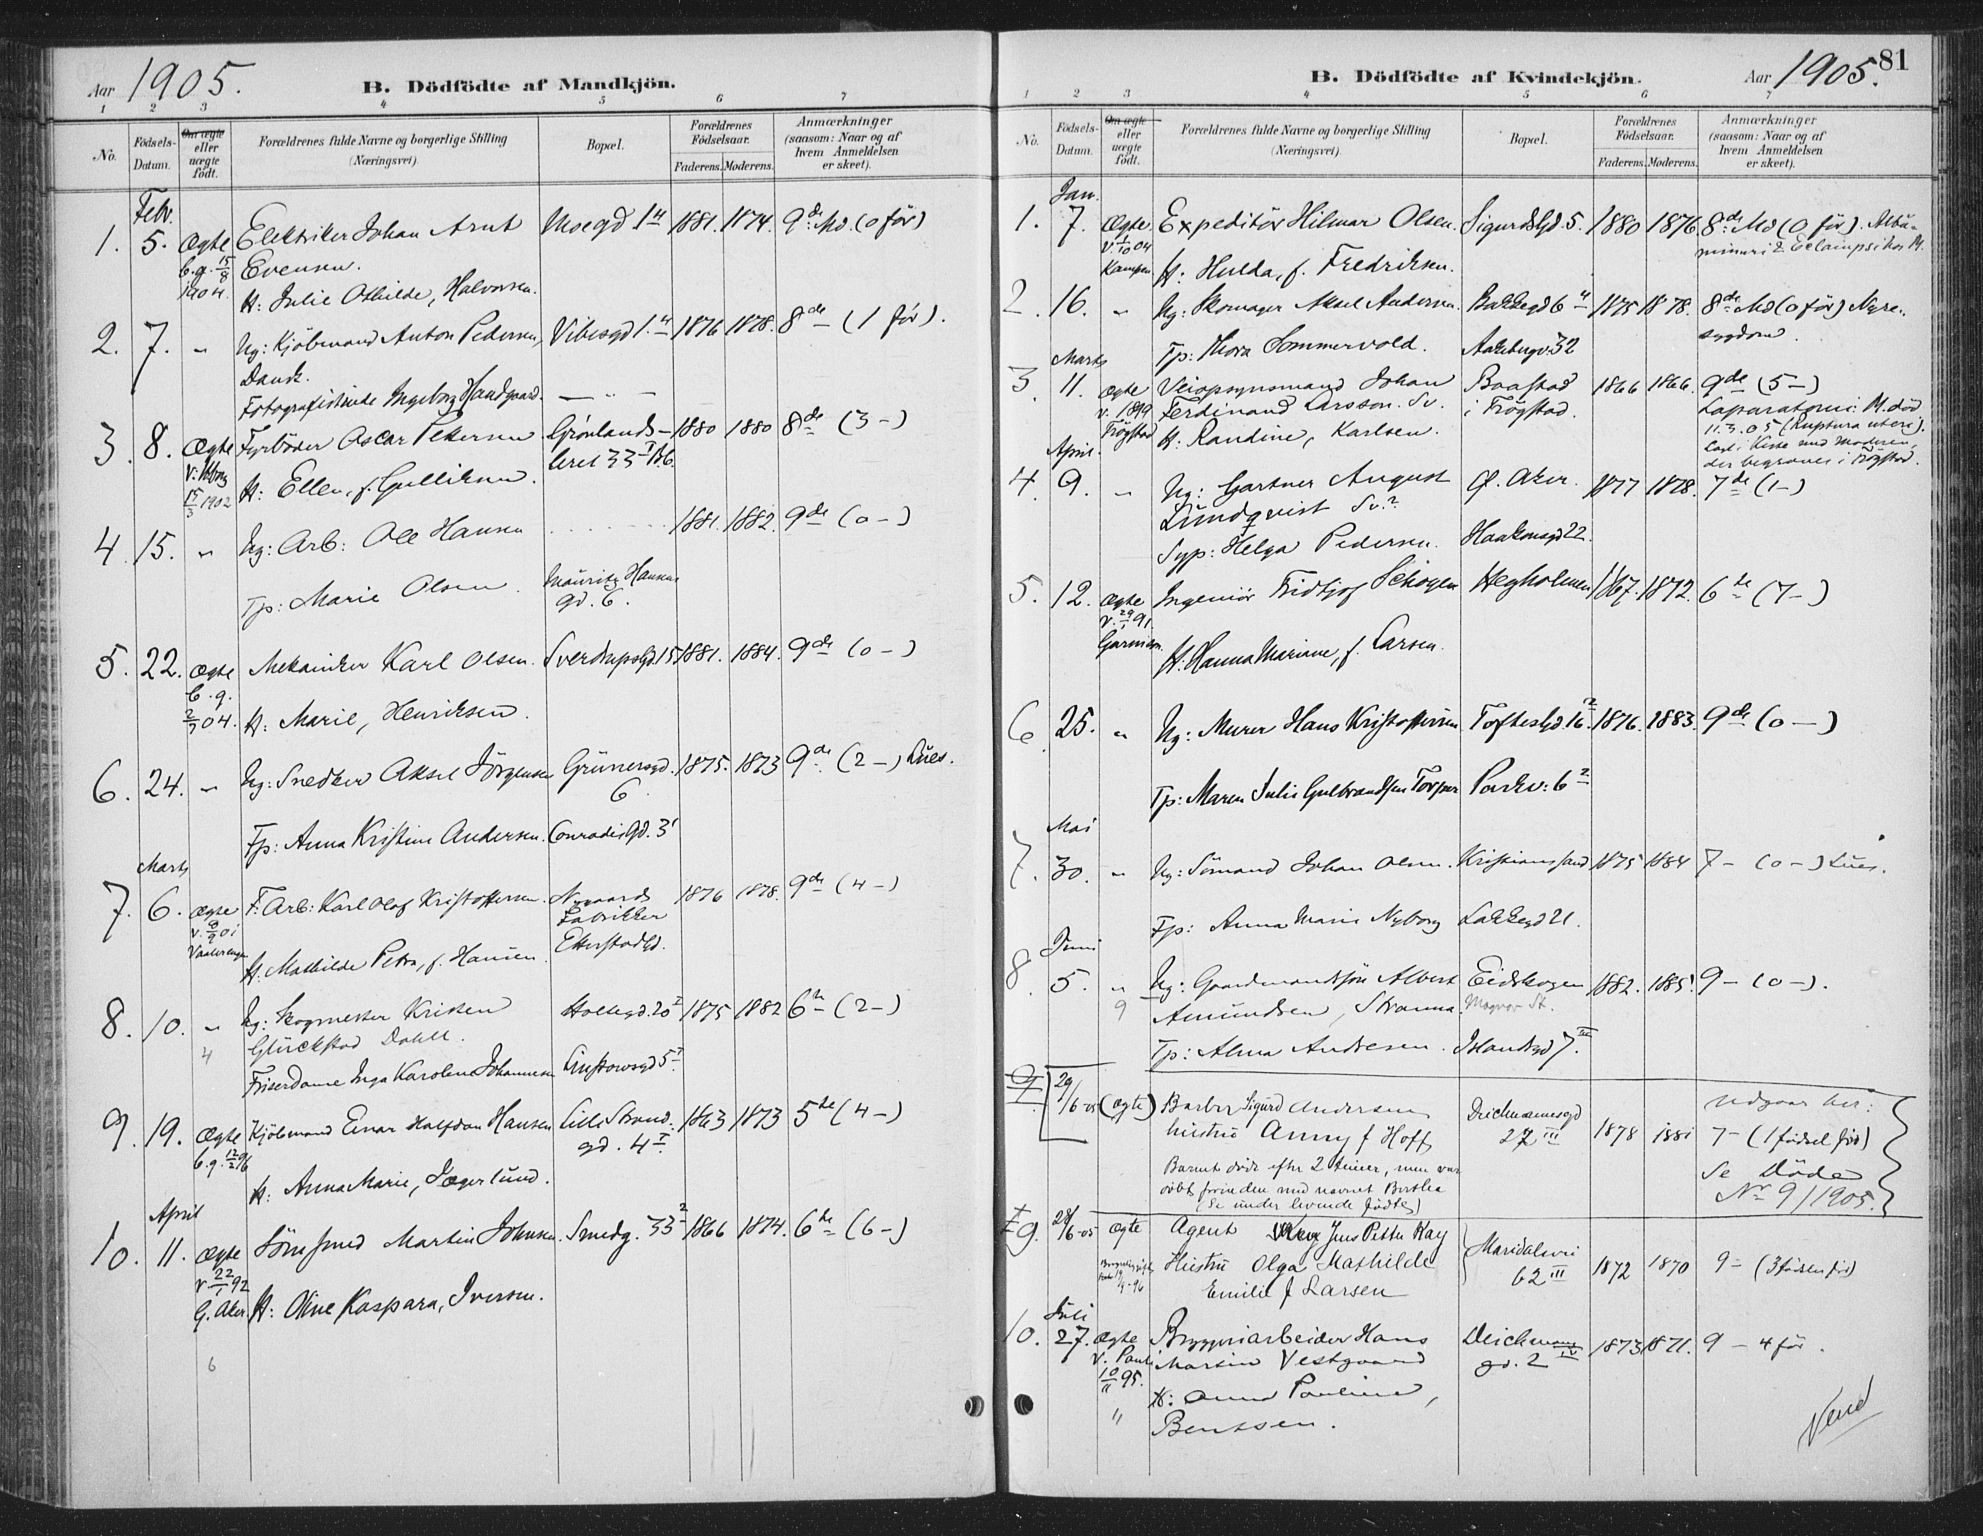 Aar 1905.
B. Dödfödte af Mandkjön.
1 2 3 4 5 6 7
No.
Födsels-Datum.
Om ægte eller uægte født.
Forældrenes fulde Navne og borgerlige Stilling (Næringsvei).
Bopæl.
Forældrenes Födselsaar.
Faderens. Moderens.
Anmærkninger (saasom: Naar og af hvem Anmeldelsen er skeet).
Febr.
1. 5. Ægte Elektriker Johan Arnt Moegd 1 1881. 1874. 9de Md (0 før)
b.g. 15/8 Evensen.
1904. H: Julie Othilde, Halvorsen.
2. 7. " Ug: Kjøbmand Anton Pedersen, Vibesgd 1. 1876 1878. 8de (1 før).
Dansk.
Fotografistinde Ingeborg Handgaard. — " —
3. 8. Ægte Fyrbøder Oscar Pettersen Grønlands- 1880 1880 8de (3 -)
leret 33
15/3 1902 H: Ellen, f. Gulliksen.
4. 15. " Ug: Arb: Ole Hansen 1881. 1882. 9de (0 -)
Tp: Marie Olsen. Mauritz Hansens
gd. 6.
5. 22. Ægte Mekaniker Karl Olsen. Sverdrupsgd. 15 1881. 1884. 9de (0 -)
b.g.
2/7 04. H: Marie, Henriksen.
6. 24. " Ug: Snedker Aksel Jørgensen Grünersgd. 1875. 1873 9de (2 -) Lues.
6
Fp: Anna Kristine Andersen. Conradisgd. 3
Marts
7. 6. Ægte F. Arb: Karl Olaf Kristoffersen. Nygaards 1876 1878. 9de (4 -)
Fabrikker
Etterstadgd.
H. Mathilde Petra, f. Hansen.
8. 10. " Ug: Skogmester Kristen Holtegd. 20 1875 1882 6te (2 -)
4 Glückstad Dahll.
Friserdame Inga Karoline Johannesen Linstowsgd 5
9. 19. Ægte Kjøbmand Einar Halfdan Hansen Lille Strand- 1863 1873 5te (4 -)
b.g. 12/2 96 gd. 4
H: Anna Marie, Jægerlund.
April
10. 11. Ægte Martin Johnsen. Smedg. 33 1866 1874. 6te (6 -)
v. 22/1 92
G. Aker H: Oline Kaspara, Iversen.
6
81
B. Dödfödte af Kvindekjön. Aar 1905.
1 2 3 4 5 6 7
No.
Födsels-Datum.
Om ægte eller uægte födt.
Forældrenes fulde Navne og borgerlige Stilling (Næringsvei).
Bopæl.
Forældrenes Födselsaar.
Faderens. Moderens.
Anmærkninger (saasom: Naar og af hvem Anmeldelsen er skeet).
Jan.
1. 7. Ægte Expeditør Hilmar Olsen. Sigurdsgd. 5. 1880 1876 8de Md (0 før). Albu-
v 1/10 04 minuri & Eclampsi hos M.
Kampen H: Hulda, f. Fredriksen.
2. 16. " Ug: Skomager Aksel Andersen Bakkegd 6 1875 1878. 8de Md (0 før) Nyre-
sygdom.
Tp: Thora Sommervold. Aakebergv. 32
Marts
3. 11. Ægte Veiopsynsmand Johan Baastad 1866 1866. 9de (5 -)
v. 1899 Ferdinand Larsson. Sv. i Trøgstad. Laparatomi: M. død
Trøgstad H: Randine, Karlsen. 11.3.05 (Ruptura uteri).
Lagt i Kiste med Moderen,
der begraves i Trøgstad.
April.
4. 9. " Ug: Gartner August Ø. Aker. 1877 1878. 7de (1 -)
Lundqvist Sv.?
Syp: Helga Pedersen. Haakonsgd 22.
5. 12. Ægte Ingeniør Fridtjof Schøyen Hegholmen 1867. 1872. 6te (7 -)
v. 29/1 91.
H: Hanna Mariane, f. Larsen.
6. 25. " Ug: Murer Hans Kristoffersen Toftesgd. 16. 1876. 1883. 9de (0 -)
Tp: Maren Julie Gulbrandsen Torper Parkv: 6
Mai
7. 30. " Ug: Sømand Johan Olsen. Kristianssand 1875 1884 7 - (0 -) Lues.
Fp: Anna Marie Nyborg Lakkegd 21.
Juni
8. 5. " Ug: Gaardmandssøn Albert Eidskogen 1882. 1885. 9 - (0 -).
9 Amundsen, Stranna Magnor St.
Tp: Alma Andresen. Islandsgd 7.
9. 29/6-05 (ægte) Barber Sigurd Andersen Deichmannsgd 1878 1881 Udgaar her:
hustru Anny f Hoff 27 III 7 - (1 fødsel før)
Barnet døde efter 2 timer, men var Se Døde
døbt forinden med navnet Borthea No 9/1905.
(Se under levende fødte)
9. 28/6-05 ægte Agent Jens Petter Kay Maridalsvei 1872 1870 9 - (3 fødsler før)
Hustru Olga Mathilde 62 III
Emilie f Larsen
Juli
10. 27. Ægte Bryggeriarbeider Hans Deichmans 1873 1871. 9 - 4 før.
v. Pauli Martin Vestgaard gd. 2
10/11 95. H: Anna Pauline,
" Bentsen.
Vend